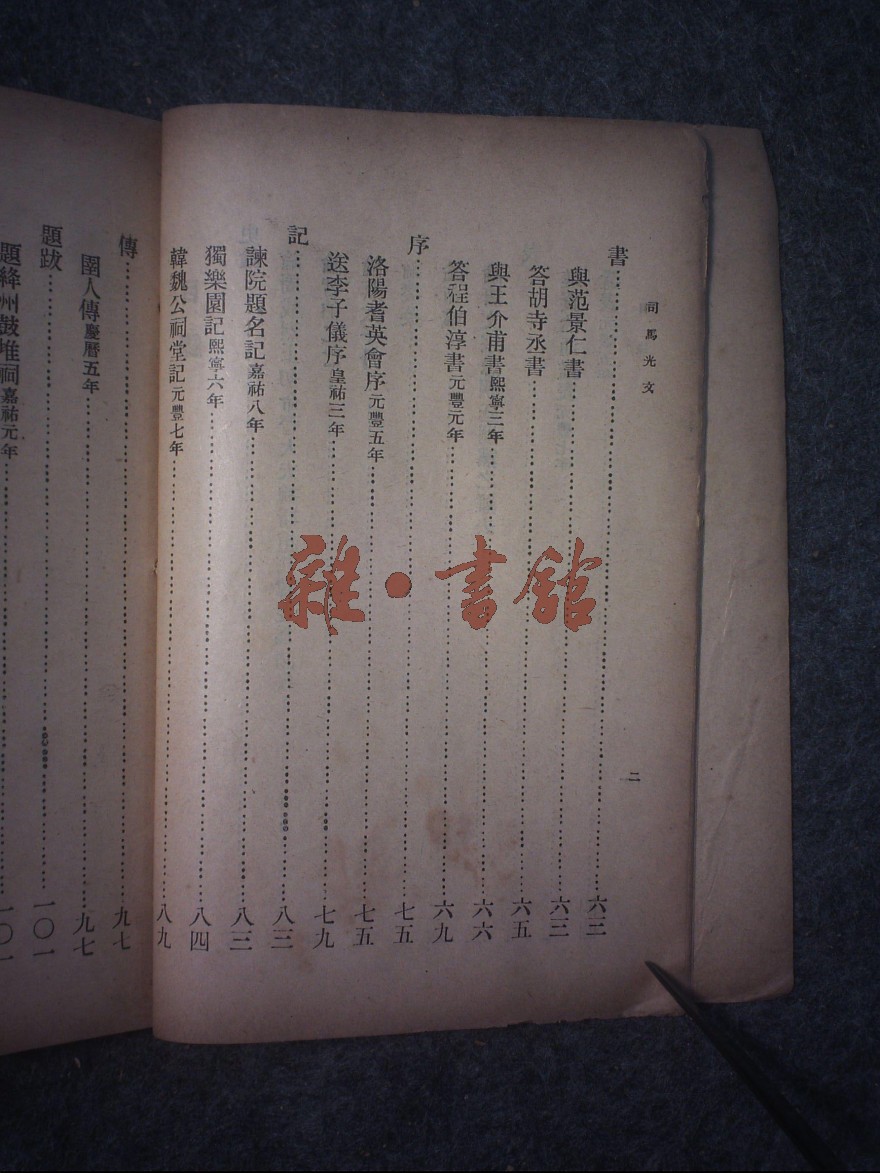 司馬光文
二
書……六三
與范景仁書……六三
答胡寺丞書……六五
與王介甫書熙寧三年……六六
答程伯淳書元豐元年……六九
序……七五
洛陽耆英會序元豐五年……七五
送李子儀序皇祐三年……七九
記……八三
諫院題名記嘉祐八年……八三
獨樂園記熙寧六年……八四
韓魏公祠堂記元豐七年……八九
傳……九七
圉人傳慶曆五年……九七
題跋……一〇一
題絳州鼓堆祠嘉祐元年……一〇一
雜·書館